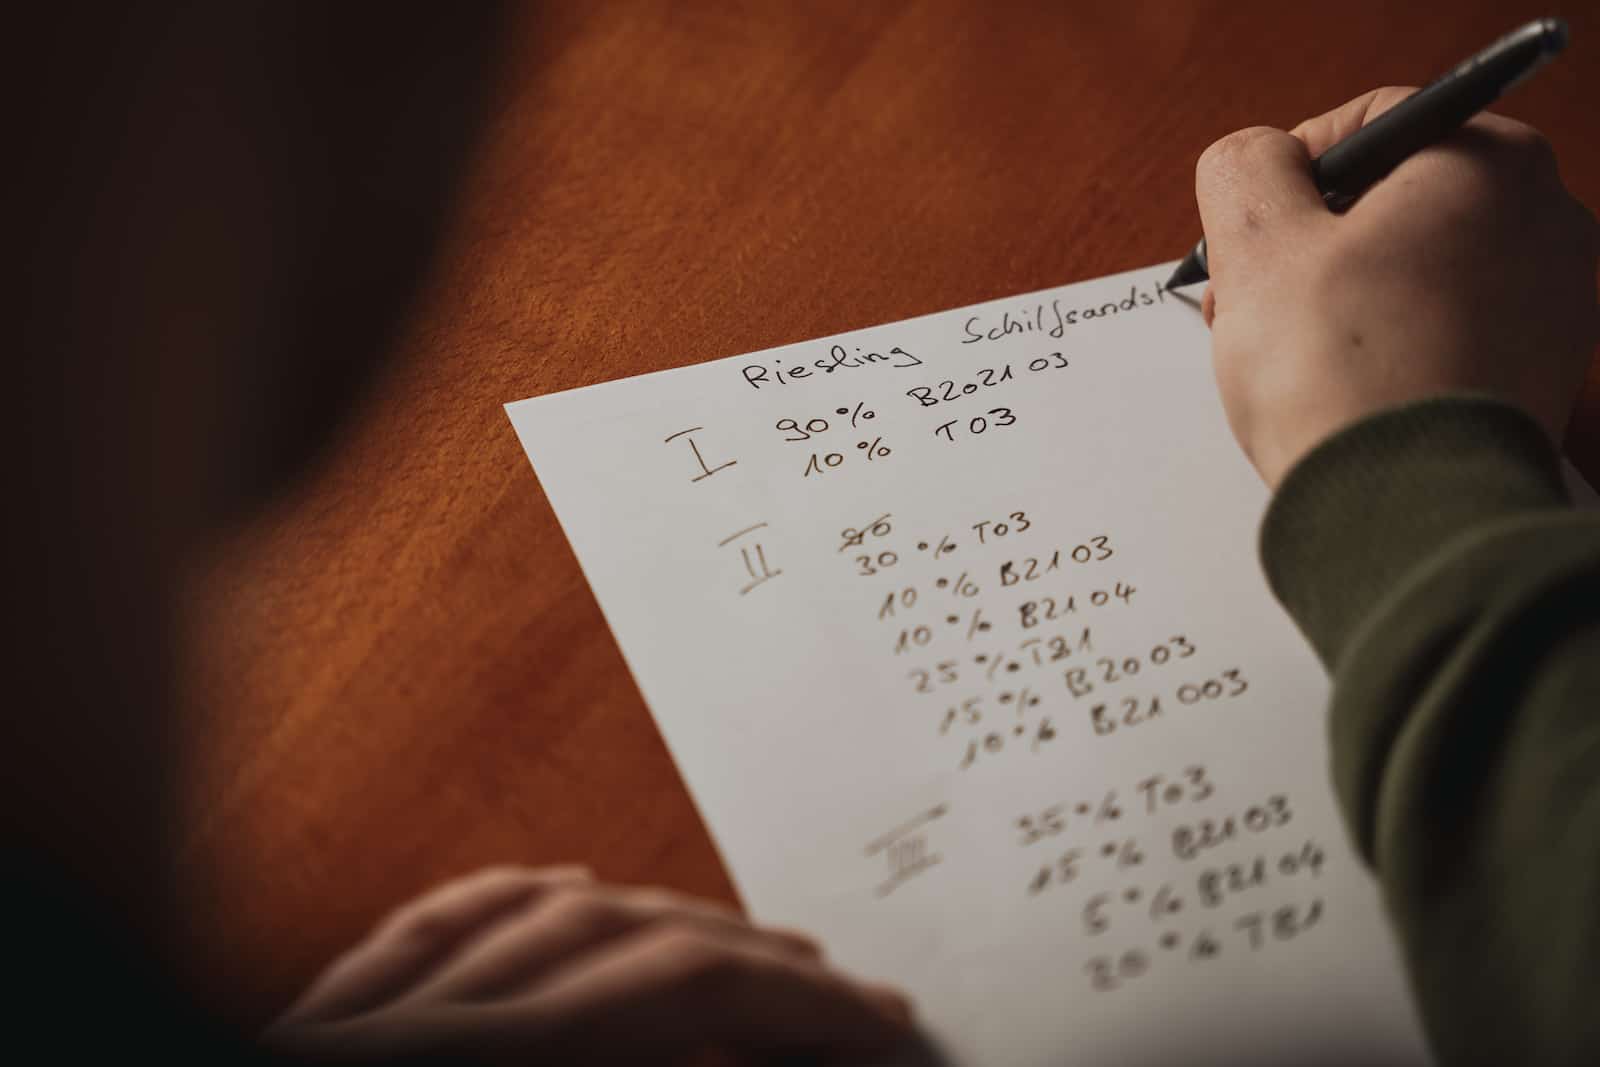 Riesling Schilfsandst
I 90% B2021 03
10% T03
II 20
30% T03
10% B21 03
10% B21 04
25% TB1
15% B20 03
10% B21 003
III 35% T03
15% B21 03
5% B21 04
20% TB1